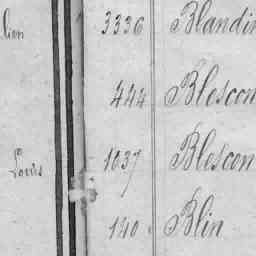 lien 3336 Blandin
444 Blescon
Louis 1037 Blescon
140 Blin